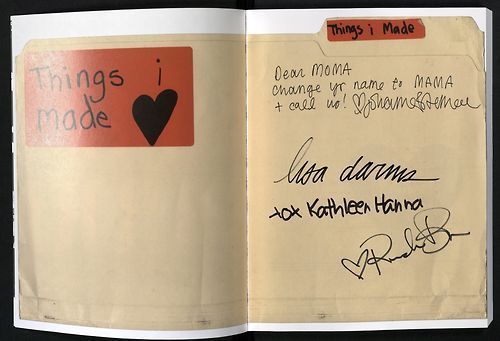 Things i
made
Things i Made
Dear MOMA
change yr name to MAMA
+ call us!
lisa darms
xox Kathleen Hanna